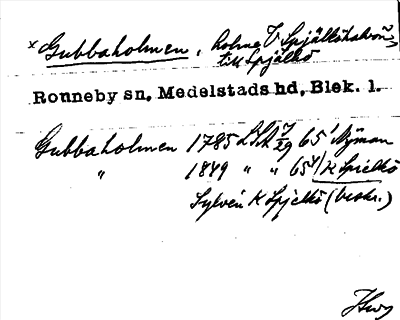 × Gubbaholmen, holme V Spjälköhalvön
till Spjälkö
Ronneby sn, Medelstads hd, Blek. l.
Gubbaholmen 1785 LSA 7/29 65' Nyman
" 1849 " " 65 4/ K Spielkö
Sylvén K Spjelkö (beskr.)